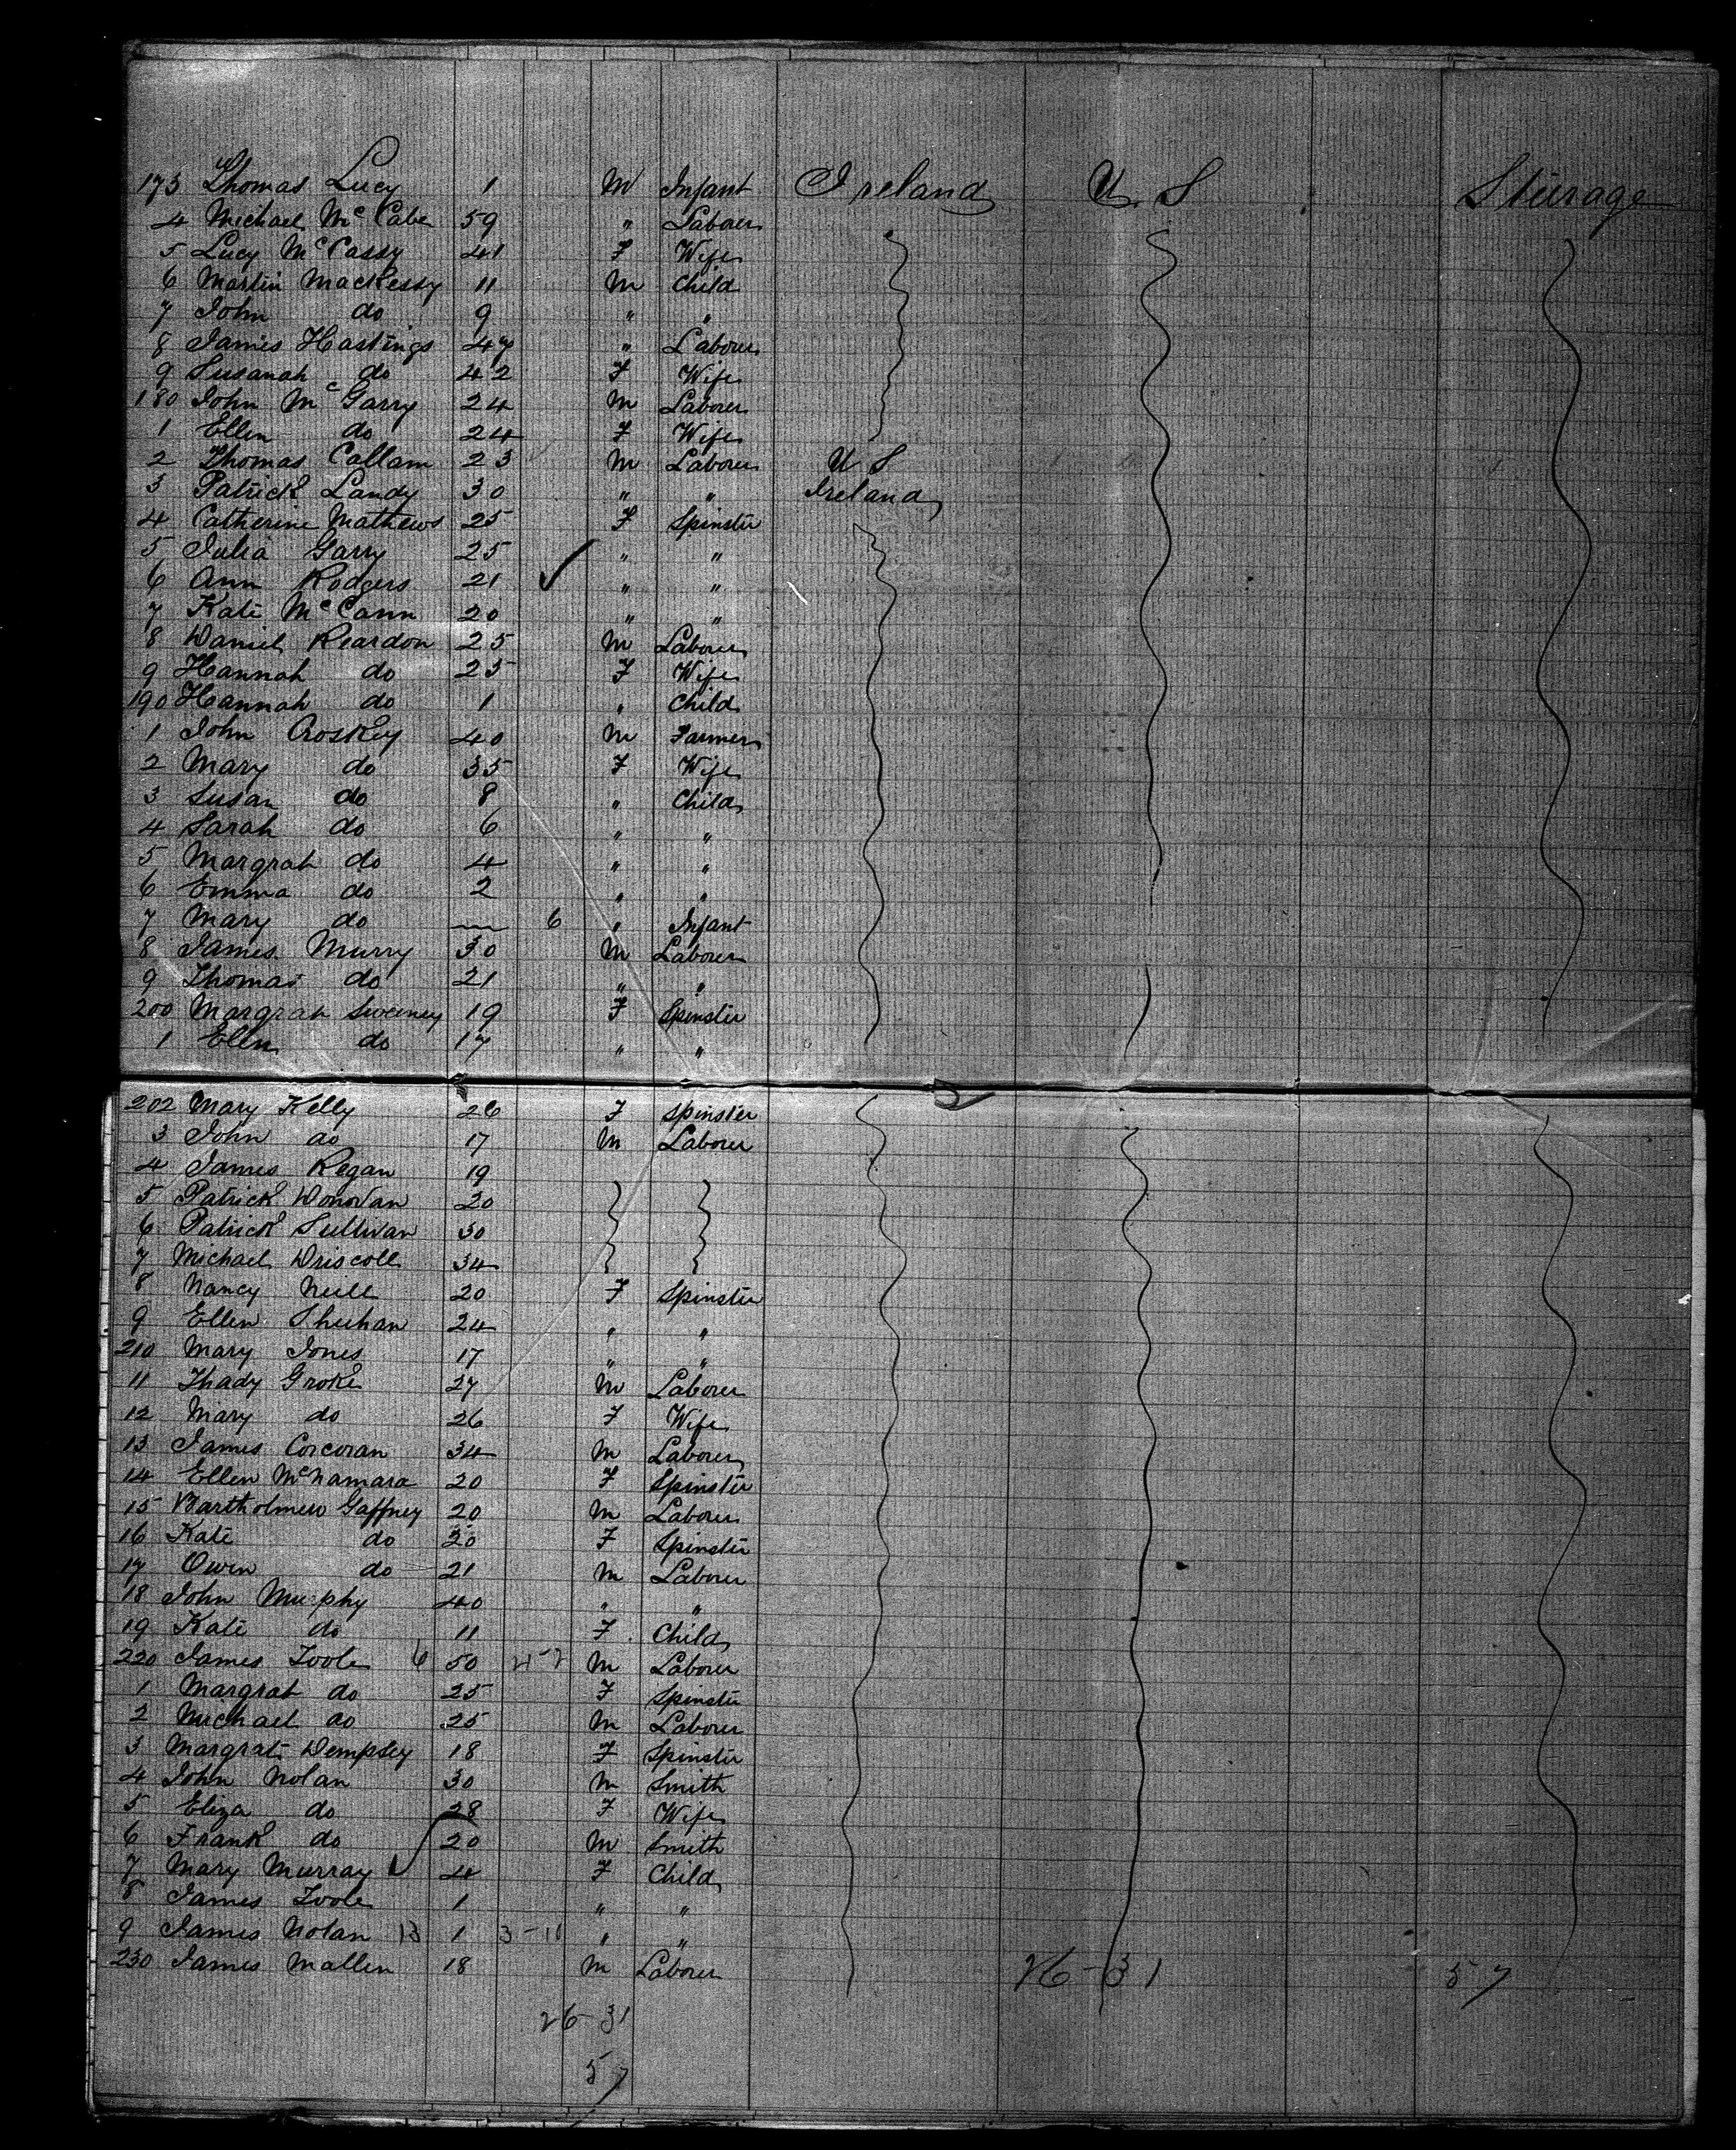 173 Thomas Lucy 1 M Infant Ireland U. S Sturage
4 Michael McCabe 59 " Laborer
5 Lucy McCassy 41 F Wife
6 Martin Mackessy 11 M Child
7 John do 9 " "
8 James Hastings 47 " Laborer
9 Susanah do 42 F Wife
180 John McGarry 24 M Laborer
1 Ellen do 24 F Wife
2 Thomas Callam 23 M Laborer U S
3 Patrick Landy 30 " " Ireland
4 Catherine Mathews 25 F Spinster
5 Julia Garry 25 " "
6 Ann Rodgers 21 ✓ " "
7 Kate McCann 20 " "
8 Daniel Reardon 25 M Laborer
9 Hannah do 25 F Wife
190 Hannah do 1 " Child
1 John Croskey 40 M Farmer
2 Mary do 35 F Wife
3 Susan do 8 " Child
4 Sarah do 6 " "
5 Margrat do 4 " "
6 Emma do 2 " "
7 Mary do — 6 " Infant
8 James Murry 30 M Laborer
9 Thomas do 21 " "
200 Margrat Sweeney 19 F Spinster
1 Ellen do 17 " "
202 Mary Kelly 26 F Spinster
3 John do 17 M Laborer
4 James Regan 19
5 Patrick Donovan 20
6 Patrick Sullivan 30
7 Michael Driscoll 34
8 Nancy Neill 20 F Spinster
9 Ellen Shuhan 24 " "
210 Mary Jones 17 " "
11 Thady Groke 27 M Laborer
12 Mary do 26 F Wife
13 James Corcoran 34 M Laborer
14 Ellen McNamara 20 F Spinster
15 Bartholmew Gaffney 20 M Laborer
16 Kate do 20 F Spinster
17 Owen do 21 M Laborer
18 John Murphy 40 " "
19 Kate do 11 F Child
220 James Toole 6 50 M Laborer
1 Margrat do 25 F Spinster
2 Michael do 25 M Laborer
3 Margrat Dempsey 18 F Spinster
4 John Nolan 30 M Smith
5 Eliza do 28 F Wife
6 Frank do 20 M Smith
7 Mary Murray ✓ 4 F Child
8 James Toole 1 " "
9 James Nolan 13 1 3-11 " "
230 James Mallen 18 M Laborer 26-31 57
26-31
57